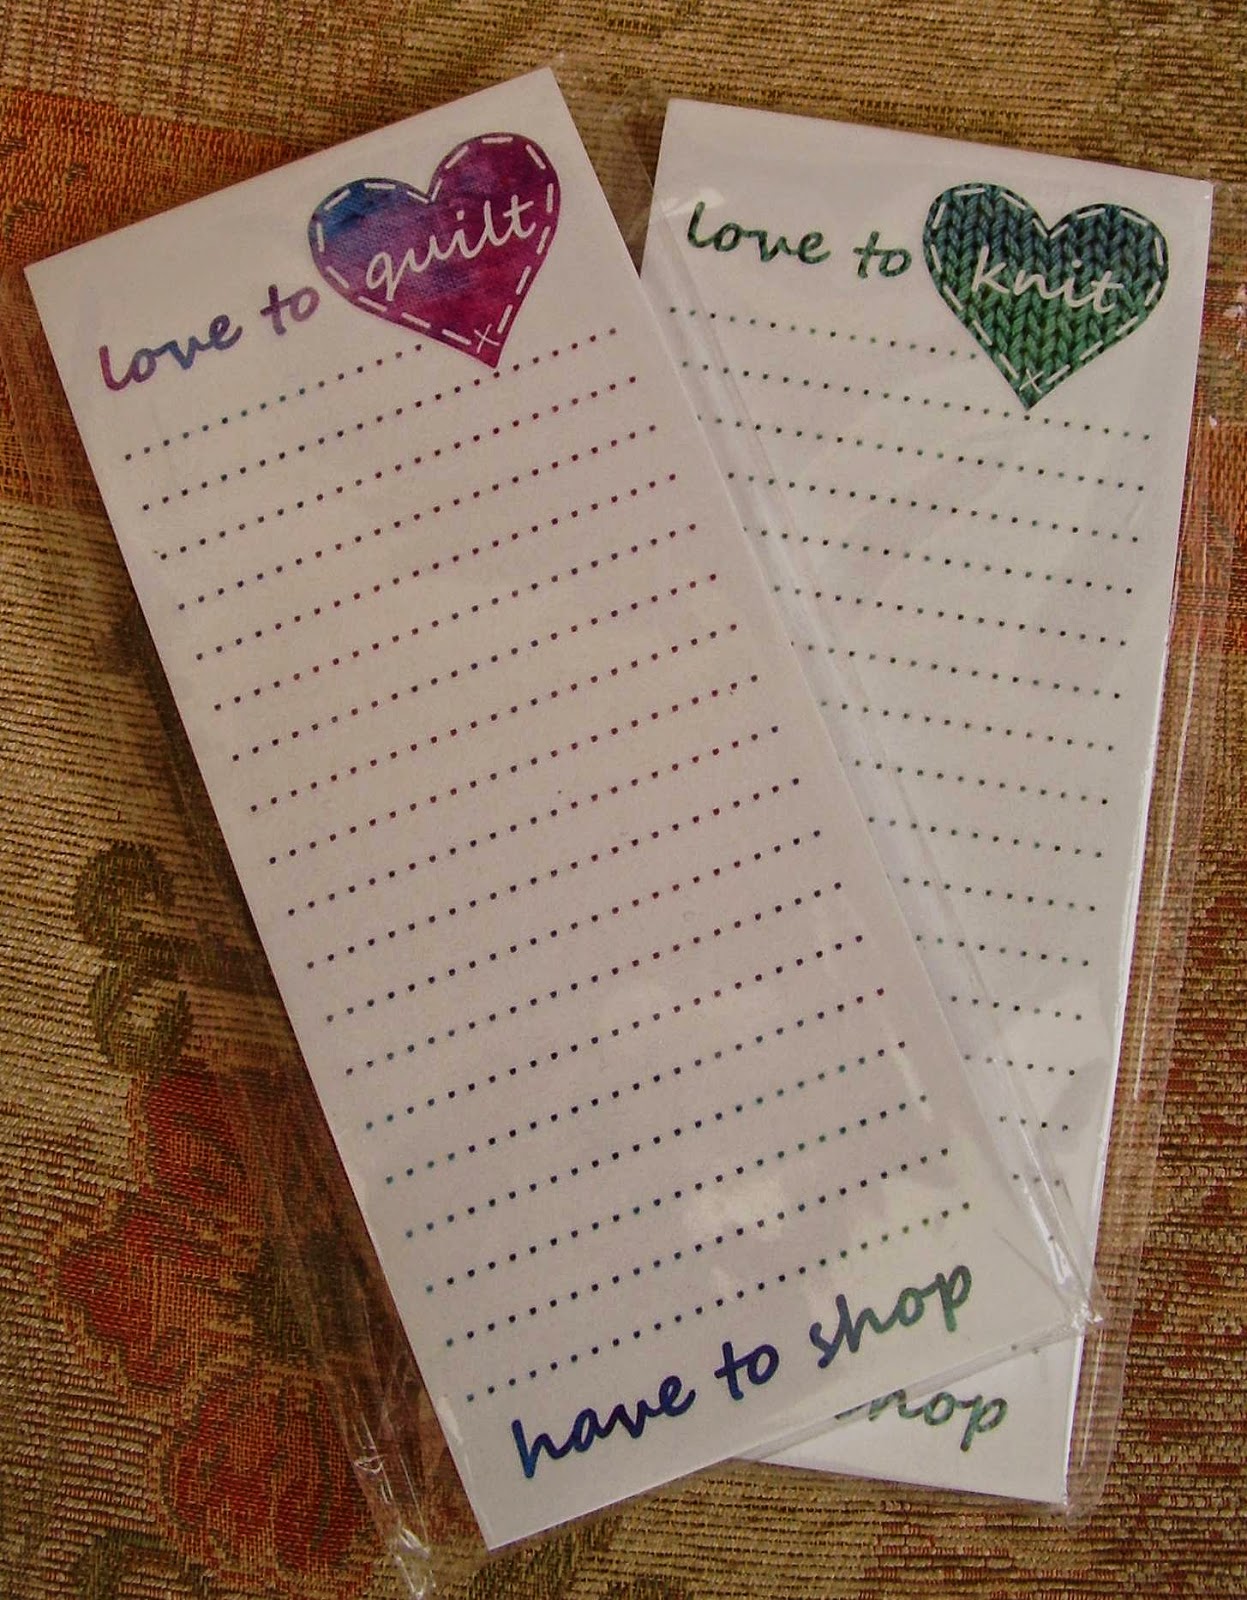 love to quilt
have to shop
love to knit
shop